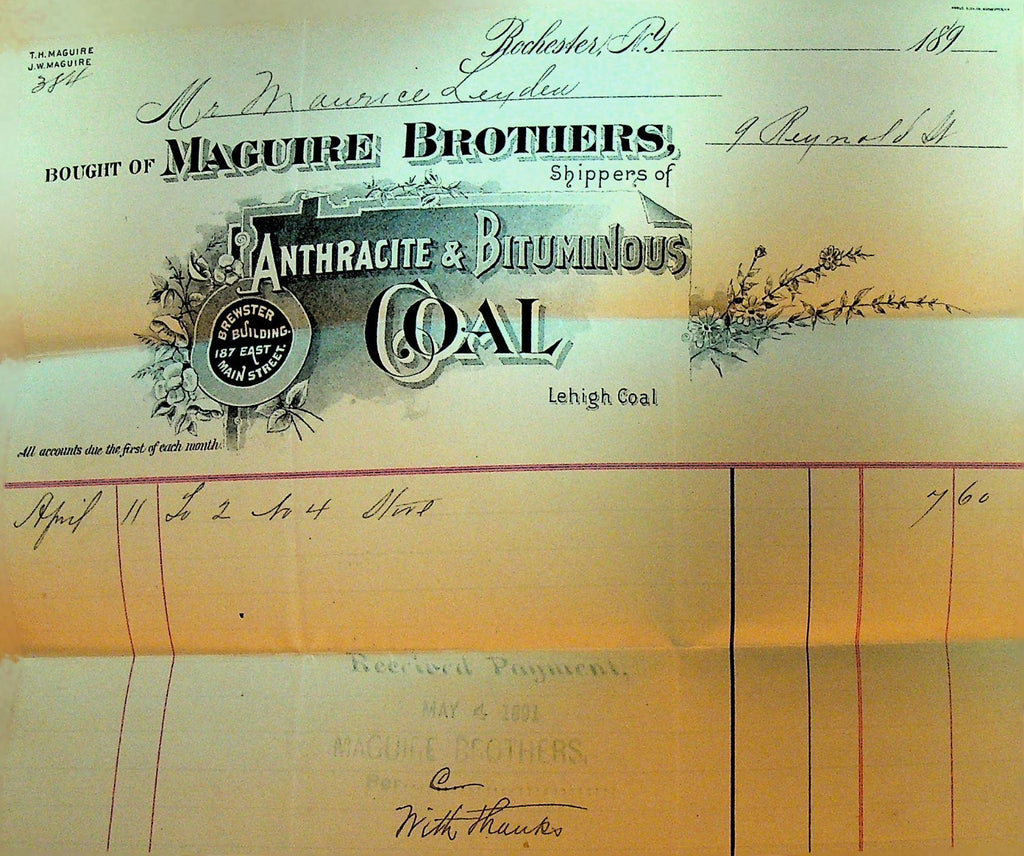 T.H. MAGUIRE
J.W. MAGUIRE
384
Rochester, N.Y. 189
Mr Maurice Leyden
9 Reynold St
BOUGHT OF MAGUIRE BROTHERS,
Shippers of
ANTHRACITE & BITUMINOUS
COAL
BREWSTER
BUILDING.
187 EAST
MAIN STREET.
Lehigh Coal
All accounts due the first of each month.
April 11 To 2 No 4 Stove 7 60
Received Payment.
MAY 4 1891
MAGUIRE BROTHERS,
Per
With Thanks